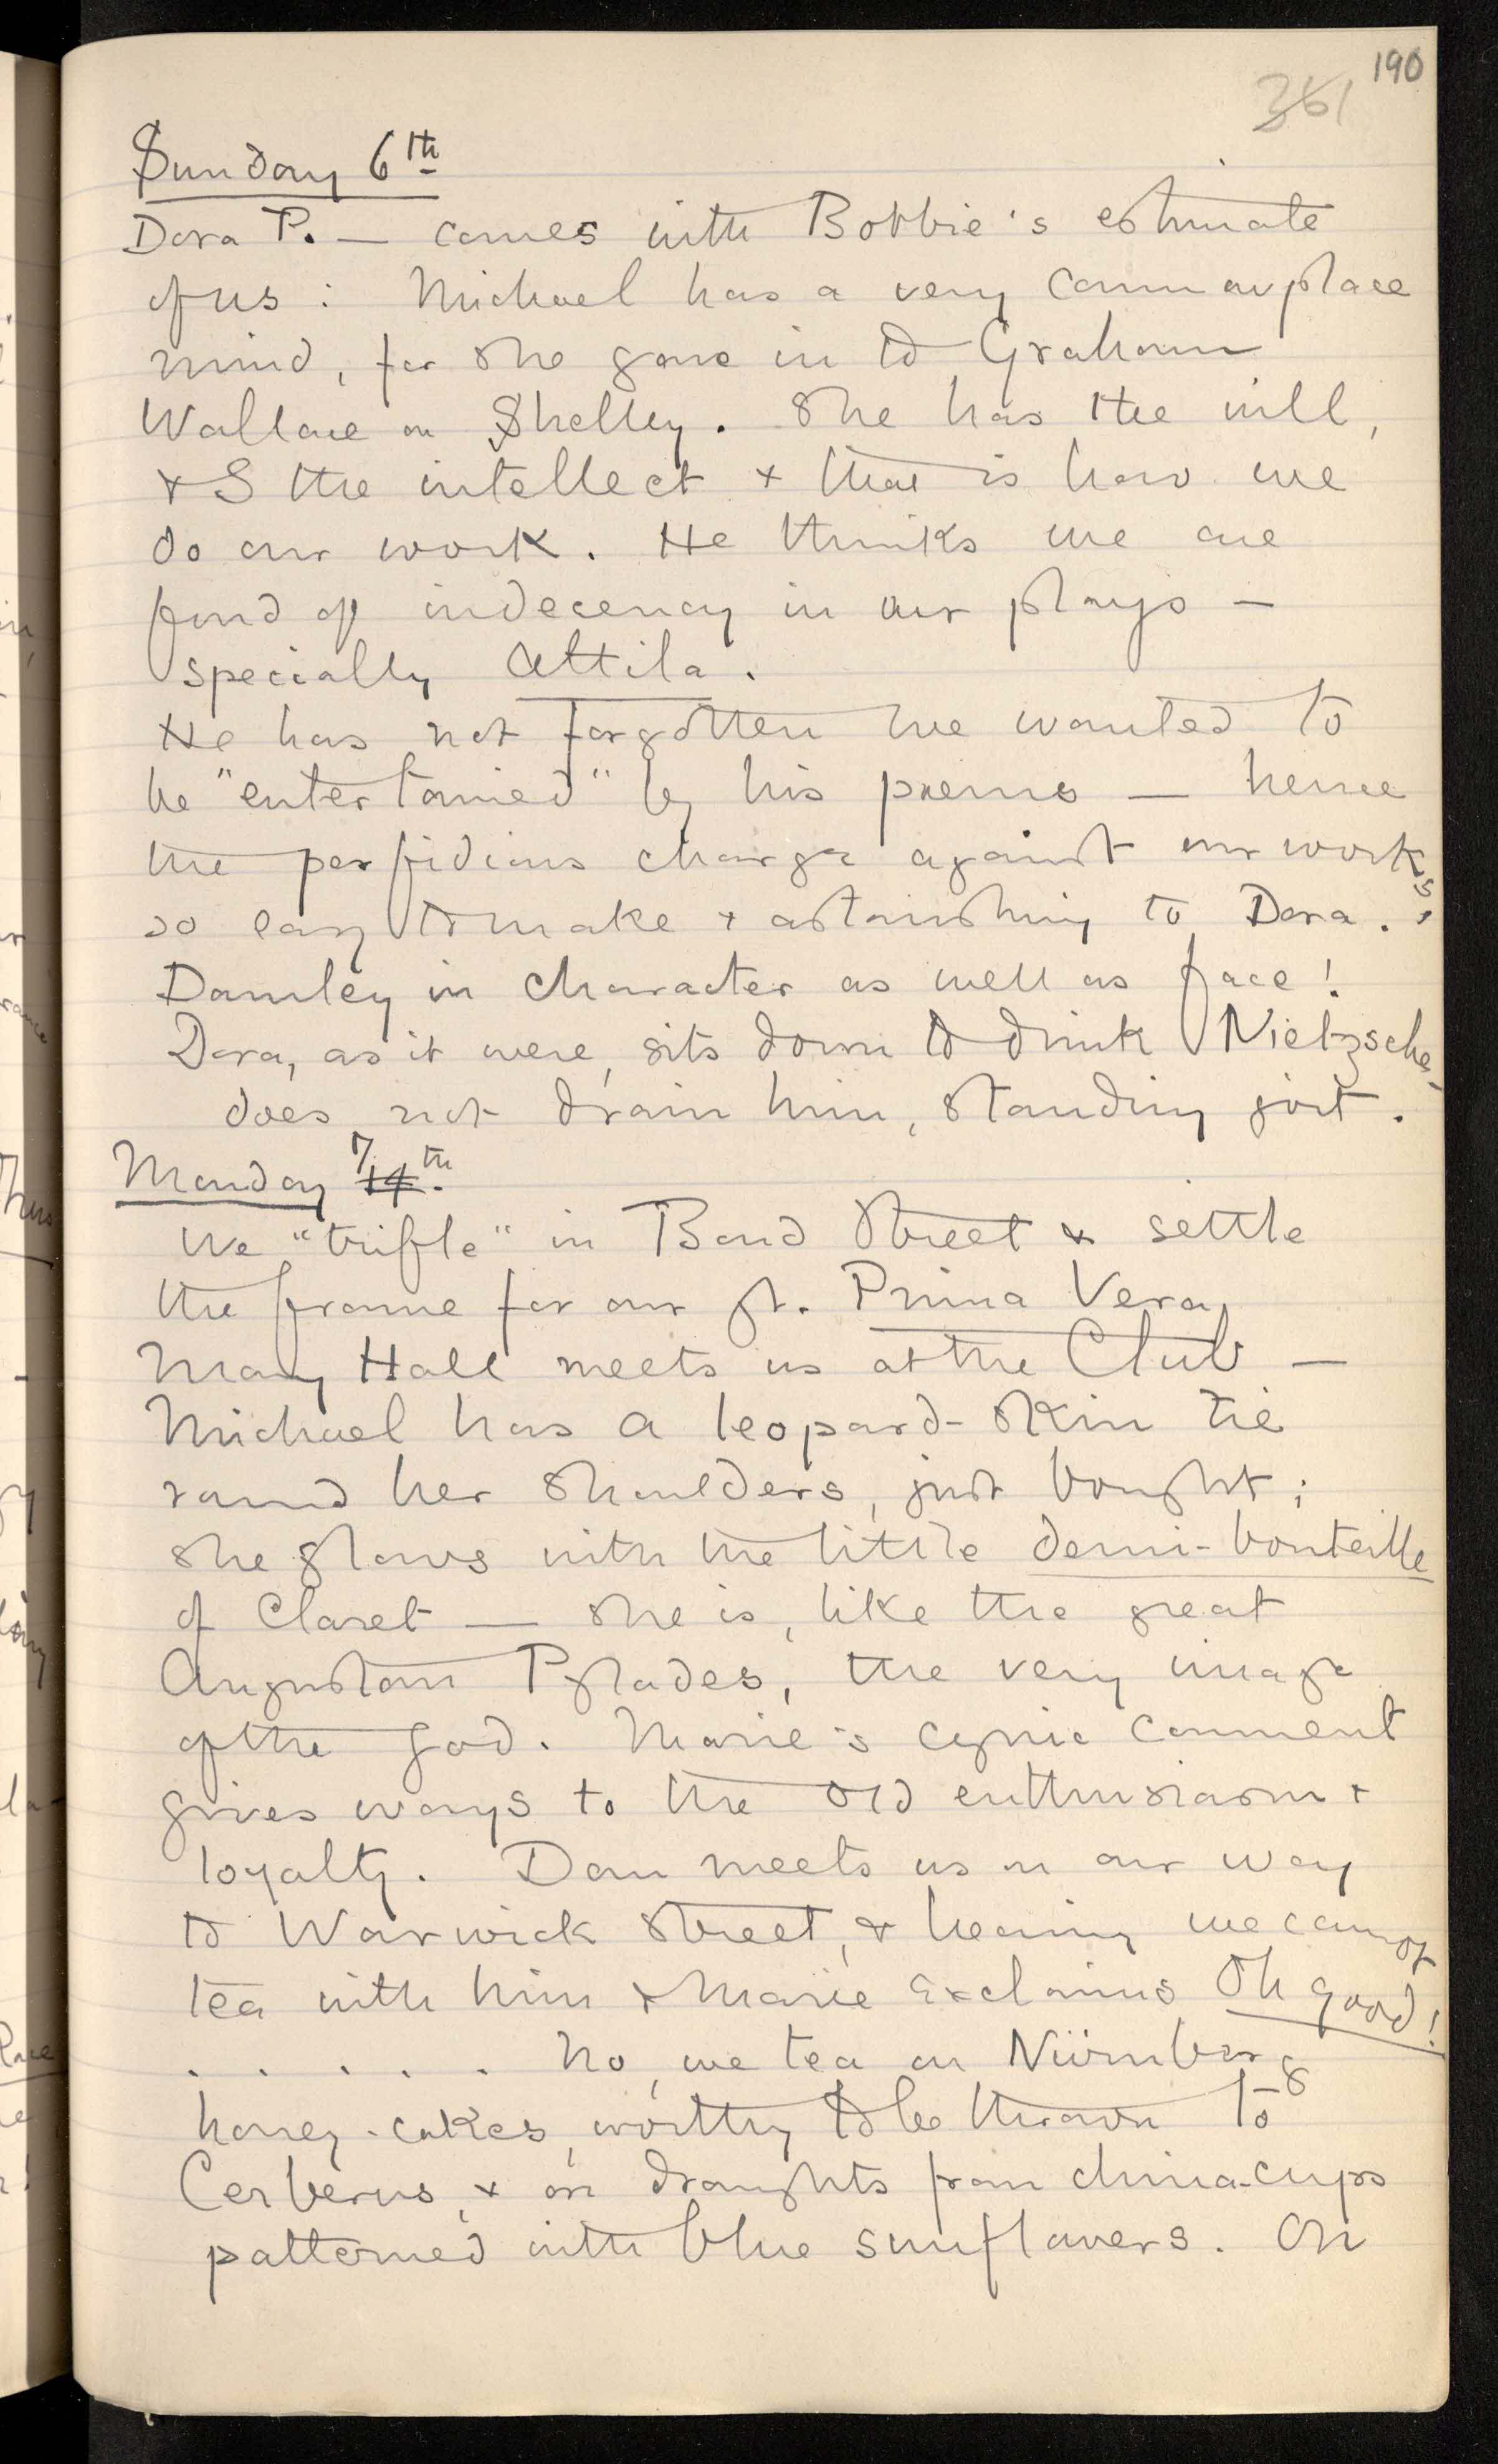 190
361
Sunday 6th
Dora P. — comes with Bobbie's estimate
of us : Michael has a very commonplace
mind, for she gave in to Graham
Wallace on Shelley. She has the will,
& I the intellect & that is how we
do our work. He thinks we are
fond of indecency in our plays —
specially Attila.
He has not forgotten we wanted to
be "entertained" by his poems — hence
the perfidious charge against our works,
so easy to make & astonishing to Dora.
Darnley in character as well as face!
Dora, as it were, sits down to drink Nietzsche,
does not drain him, standing
Monday 14 7th.
We "trifle" in Bond Street & settle
the frame for our gt. Prima Vera,
Mary Hall meets us at the Club —
Michael has a leopard-skin tie
round her shoulders, just bought;
she glows with the little demi-bouteille
of Claret — she is, like the great
Augustan Pylades, the very image
of the god. Marie's cynic comment
gives ways to the old enthusiasm &
loyalty. Dan meets us on our way
to Warwick Street, & hearing we cannot
tea with him & Marie exclaims Oh good!
. . . . . No, we tea on Nürnberg
honey-cakes, worthy to be thrown to
Cerberus, & on draughts from china-cups
patterned with blue sunflowers. On